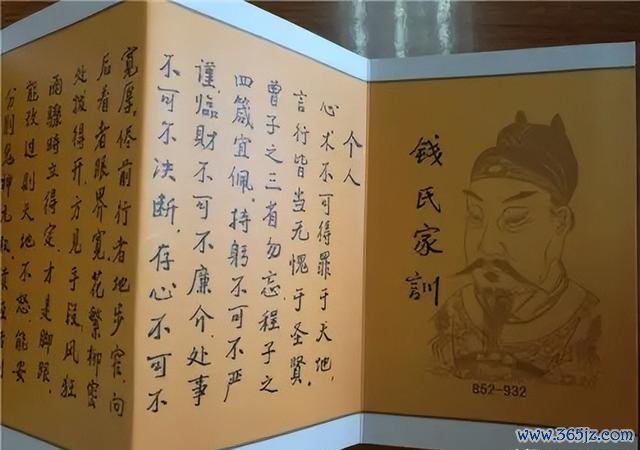 錢氏家訓
852-932
个人
心术不可得罪于天地,
言行皆当无愧于圣賢。
曾子之三省勿忘程子之
四箴宜佩。持躬不可不严
谨,临财不可不廉介,处事
不可不决断,存心不可不
寬厚。尽前行者地步窄,向
后看者眼界宽。花繁柳密
处拨得开,方见手段,风狂
雨骤時立得定,才是脚跟,
能改过则天地不怒,能安
分则鬼神无权
www.365jz.com